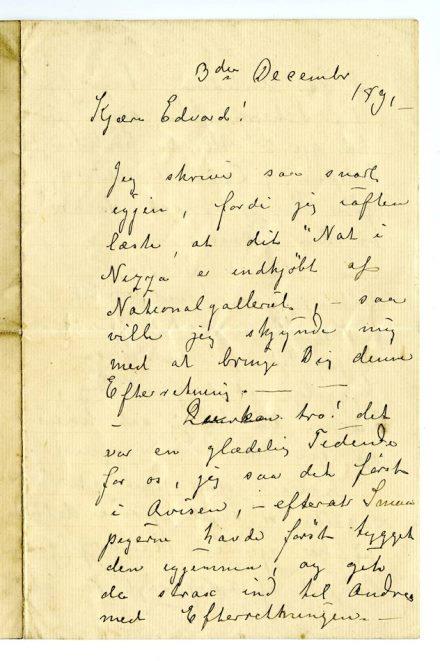 3die December
1891 –
Kjære Edvard!
Jeg skriver saa snart
igjen, fordi jeg iaften
læste, at dit "Nat i
Nizza" er indkjøbt af
Nationalgalleriet, – saa
vilde jeg skynde mig
med at bringe Dig denne
Efterretning. – –
– tro! det
var en glædelig Tidende
for os, jeg saa det først
i Avisen, – efterat Smaa
pigerne havde først tygget
den igjennem, og gik
da strax ind til Andreas
med Efterretningen. –